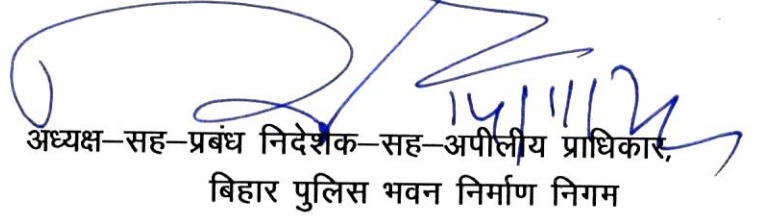 अध्यक्ष–सह–प्रबंध निदेशक–सह–अपीलीय प्राधिकार,
बिहार पुलिस भवन निर्माण निगम